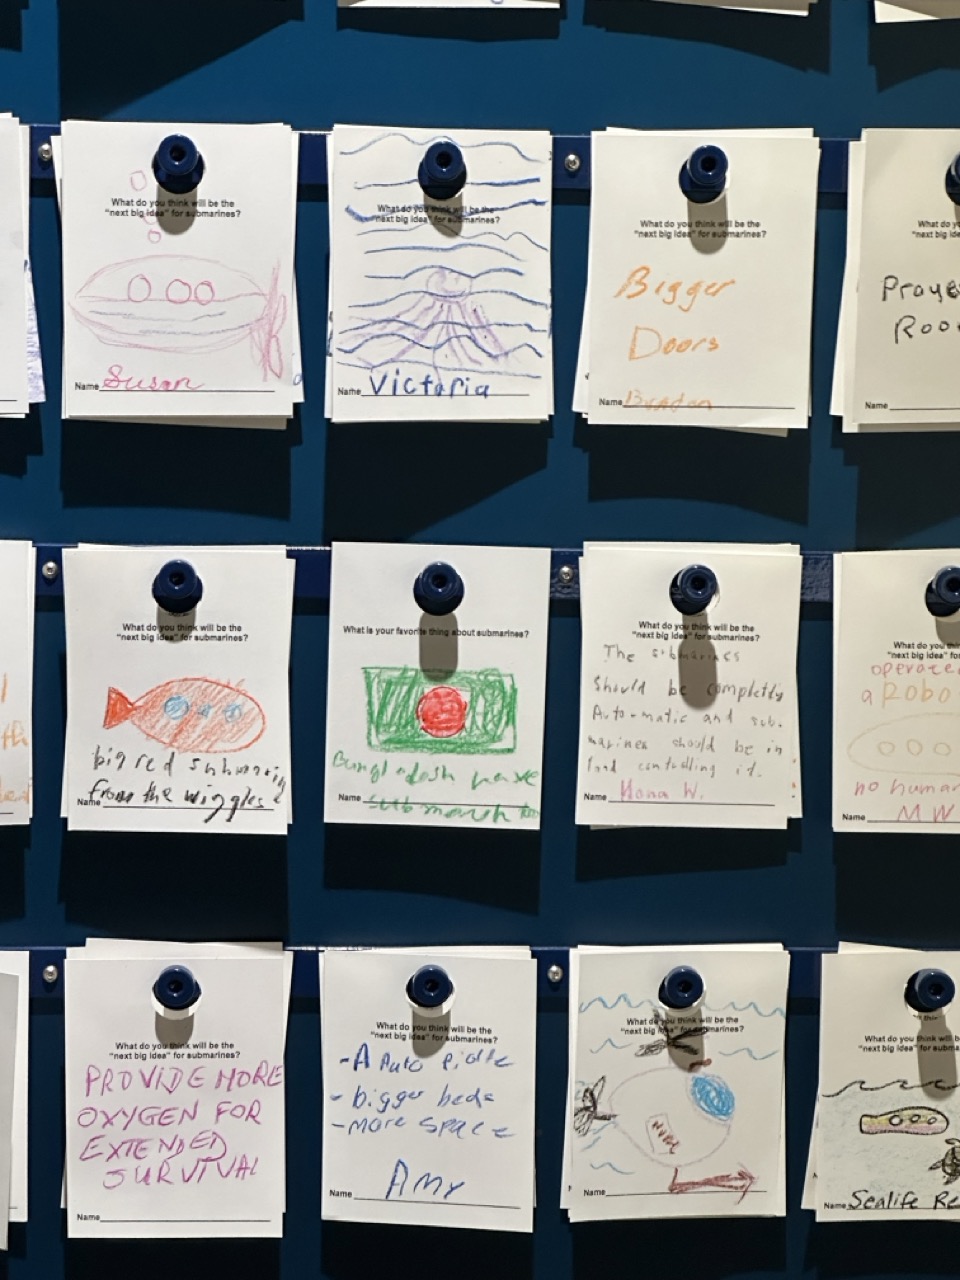 What do you think will be the
"next big idea" for submarines?
Name Susan
What do you think will be the
"next big idea" for submarines?
Name Victoria
What do you think will be the
"next big idea" for submarines?
Bigger
Doors
Name
What do you
"next big ide
Name
What do you think will be the
"next big idea" for submarines?
big red
from the wiggles
Name
What is your favorite thing about submarines?
Name
What do you think will be the
"next big idea" for submarines?
The submariness
Should be completly
Auto-matic and sub-
marines should be in
land controlling it.
Name Hona W.
What do you thin
"next big idea" fo
operate
a Robo
no human
Name MW
What do you think will be the
"next big idea" for submarines?
PROVIDE MORE
OXYGEN FOR
EXTENDED
SURVIVAL
Name
What do you think will be the
"next big idea" for submarines?
- A Auto
- bigger beds
- more space
Name Amy
What do you think will be the
"next big idea" for submarines?
Name
What do you think will b
"next big idea" for subma
Name Sealife Re